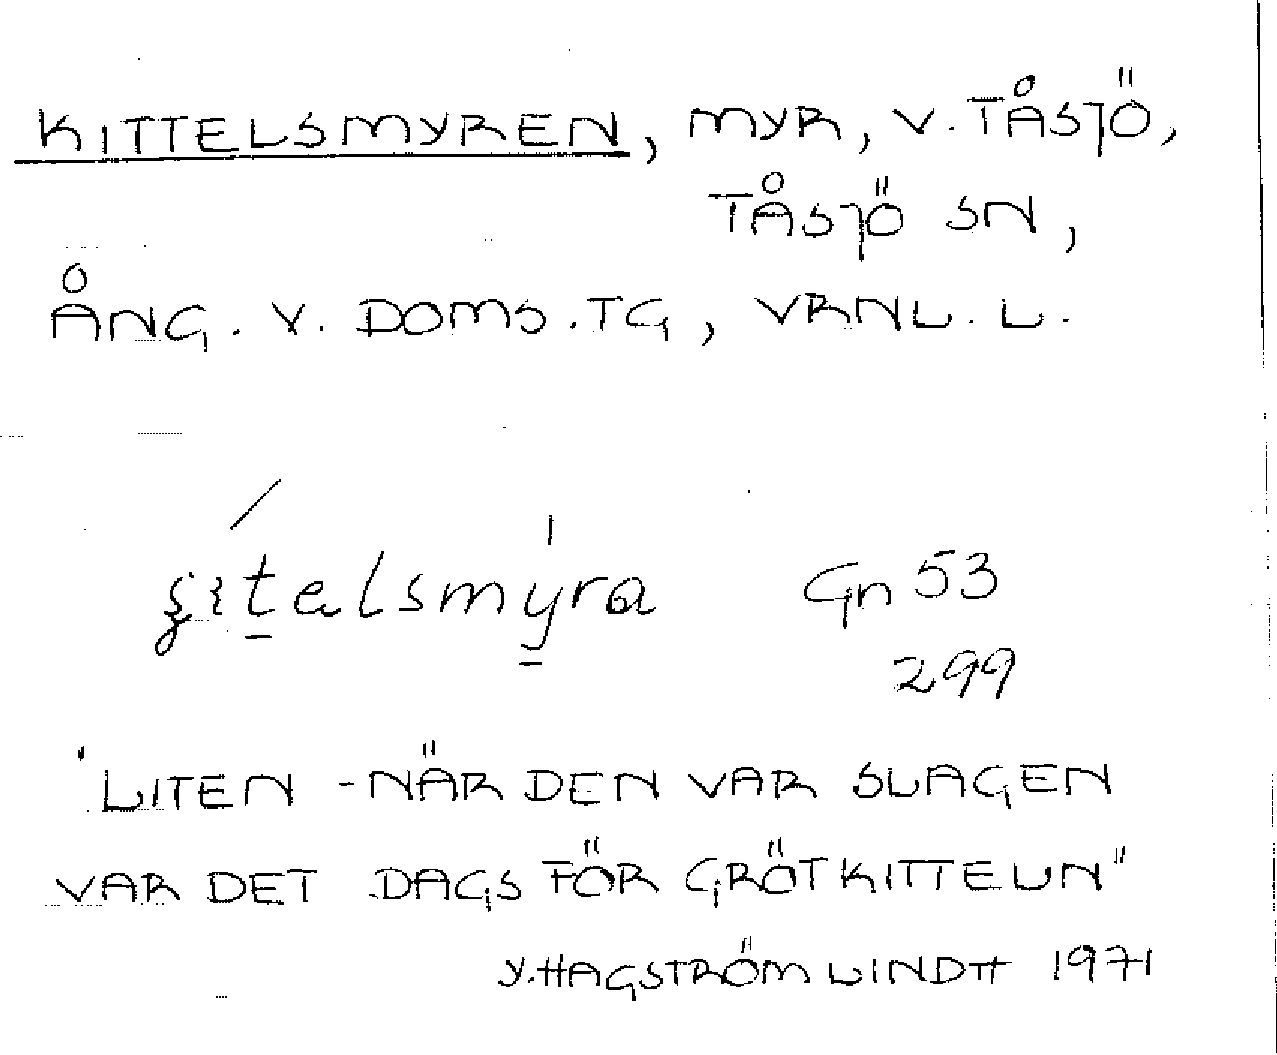 KITTELSMYREN, MYR, V. TÅSJÖ,
TÅSJÖ SN,
ÅNG. V. DOMS. TG, VRNL. L.
Gn 53
299
"LITEN - NÄR DEN VAR SLAGEN
VAR DET DAGS FÖR GRÖTKITTELN"
Y. HAGSTRÖM LINDH 1971